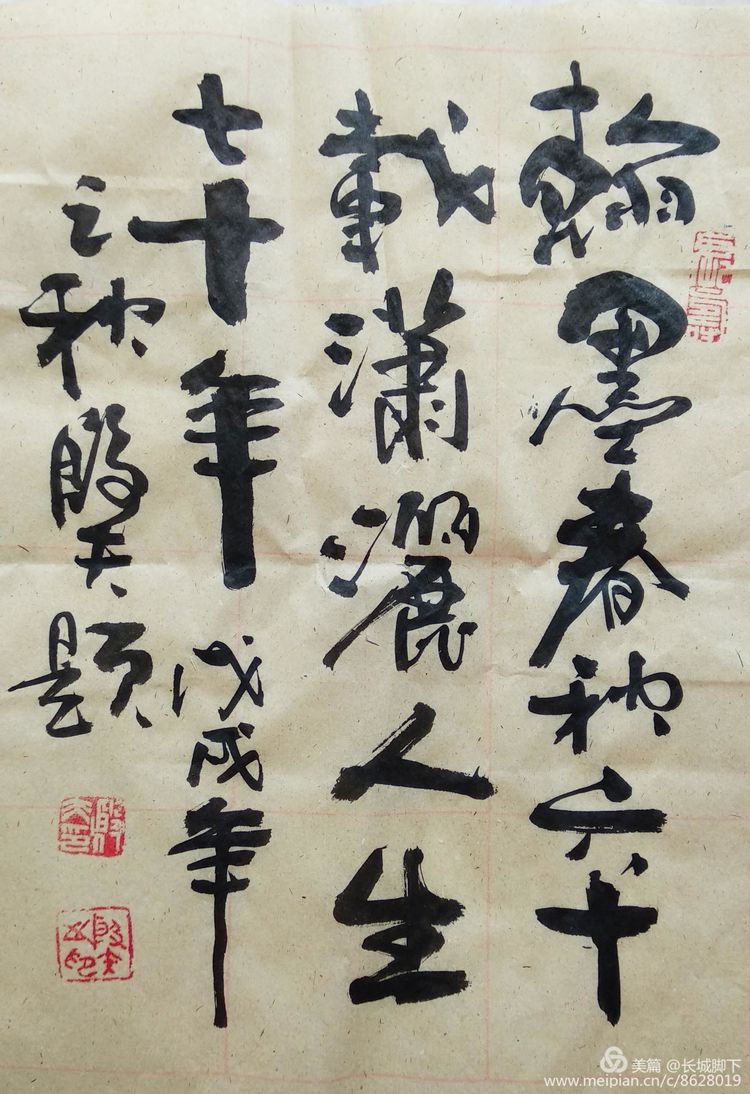 翰墨春秋六十
载潇灑人生
七十年 戊戌年
之秋殷天题
美篇 @长城脚下
www.meipian.cn/c/8628019